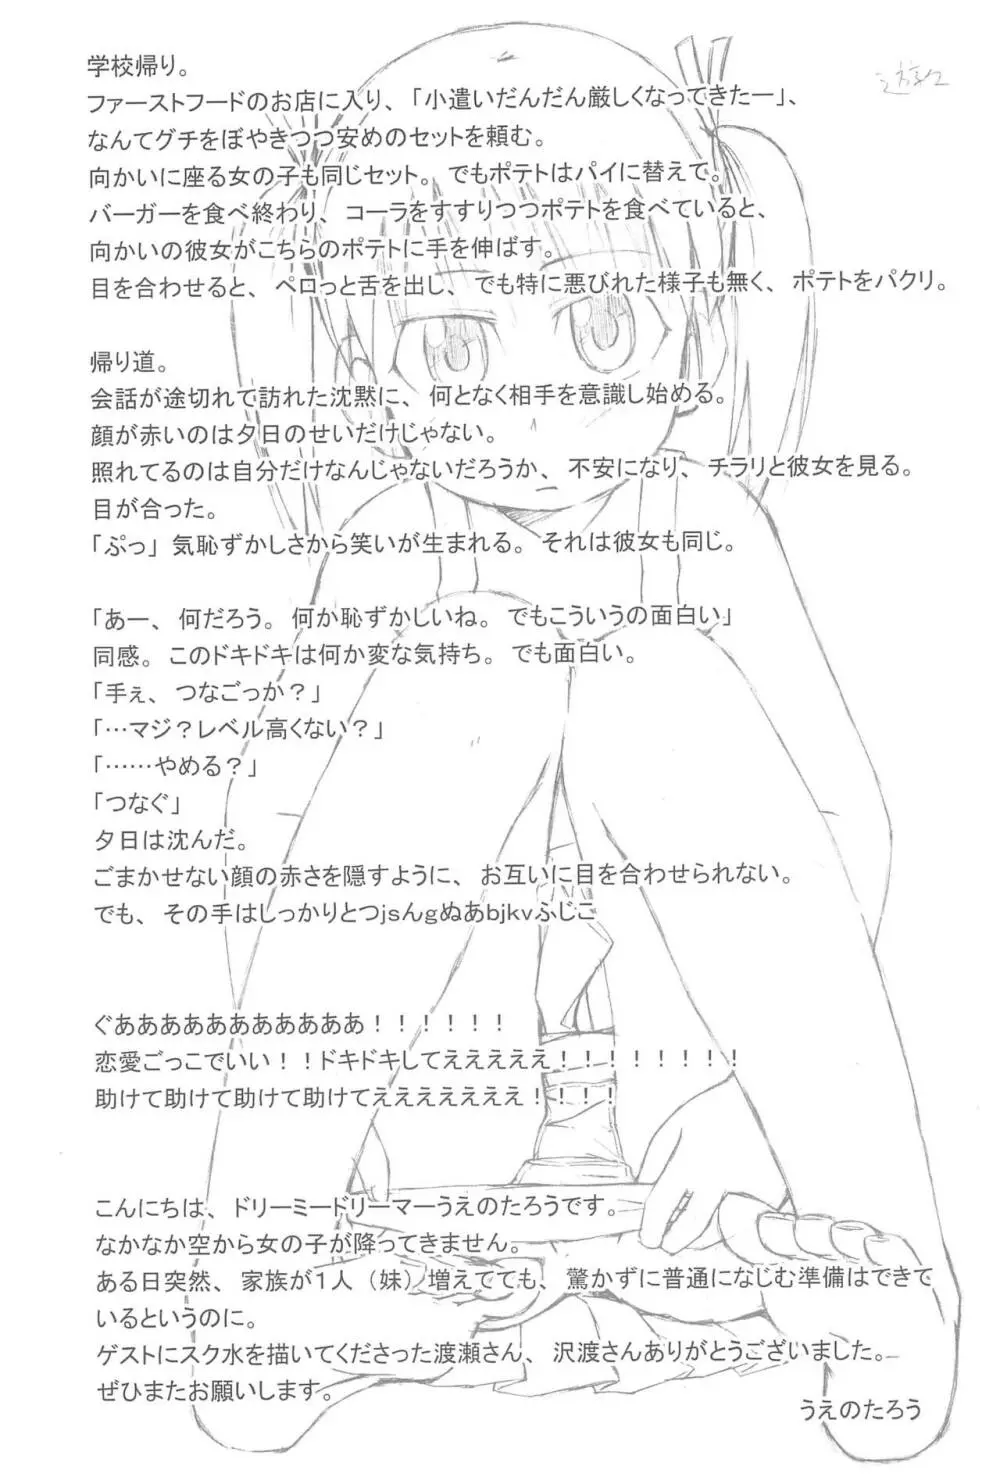 学校帰り。
ファーストフードのお店に入り、「小遣いだんだん厳しくなってきたー」、
なんてグチをぼやきつつ安めのセットを頼む。
向かいに座る女の子も同じセット。でもポテトはパイに替えて。
バーガーを食べ終わり、コーラをすすりつつポテトを食べていると、
向かいの彼女がこちらのポテトに手を伸ばす。
目を合わせると、ペロっと舌を出し、でも特に悪びれた様子も無く、ポテトをパクリ。
帰り道。
会話が途切れて訪れた沈黙に、何となく相手を意識し始める。
顔が赤いのは夕日のせいだけじゃない。
照れてるのは自分だけなんじゃないだろうか、不安になり、チラリと彼女を見る。
目が合った。
「ぷっ」気恥ずかしさから笑いが生まれる。それは彼女も同じ。
「あー、何だろう。何か恥ずかしいね。でもこういうの面白い」
同感。このドキドキは何か変な気持ち。でも面白い。
「手ぇ、つなごっか？」
「…マジ？レベル高くない？」
「……やめる？」
「つなぐ」
夕日は沈んだ。
ごまかせない顔の赤さを隠すように、お互いに目を合わせられない。
でも、その手はしっかりとつjsんgぬあbjkvふじこ
ぐあああああああああああ！！！！！！
恋愛ごっこでいい！！ドキドキしてえええええ！！！！！！！！
助けて助けて助けて助けてえええええええ！！！！
こんにちは、ドリーミードリーマーうえのたろうです。
なかなか空から女の子が降ってきません。
ある日突然、家族が1人（妹）増えてても、驚かずに普通になじむ準備はできて
いるというのに。
ゲストにスク水を描いてくださった渡瀬さん、沢渡さんありがとうございました。
ぜひまたお願いします。
うえのたろう